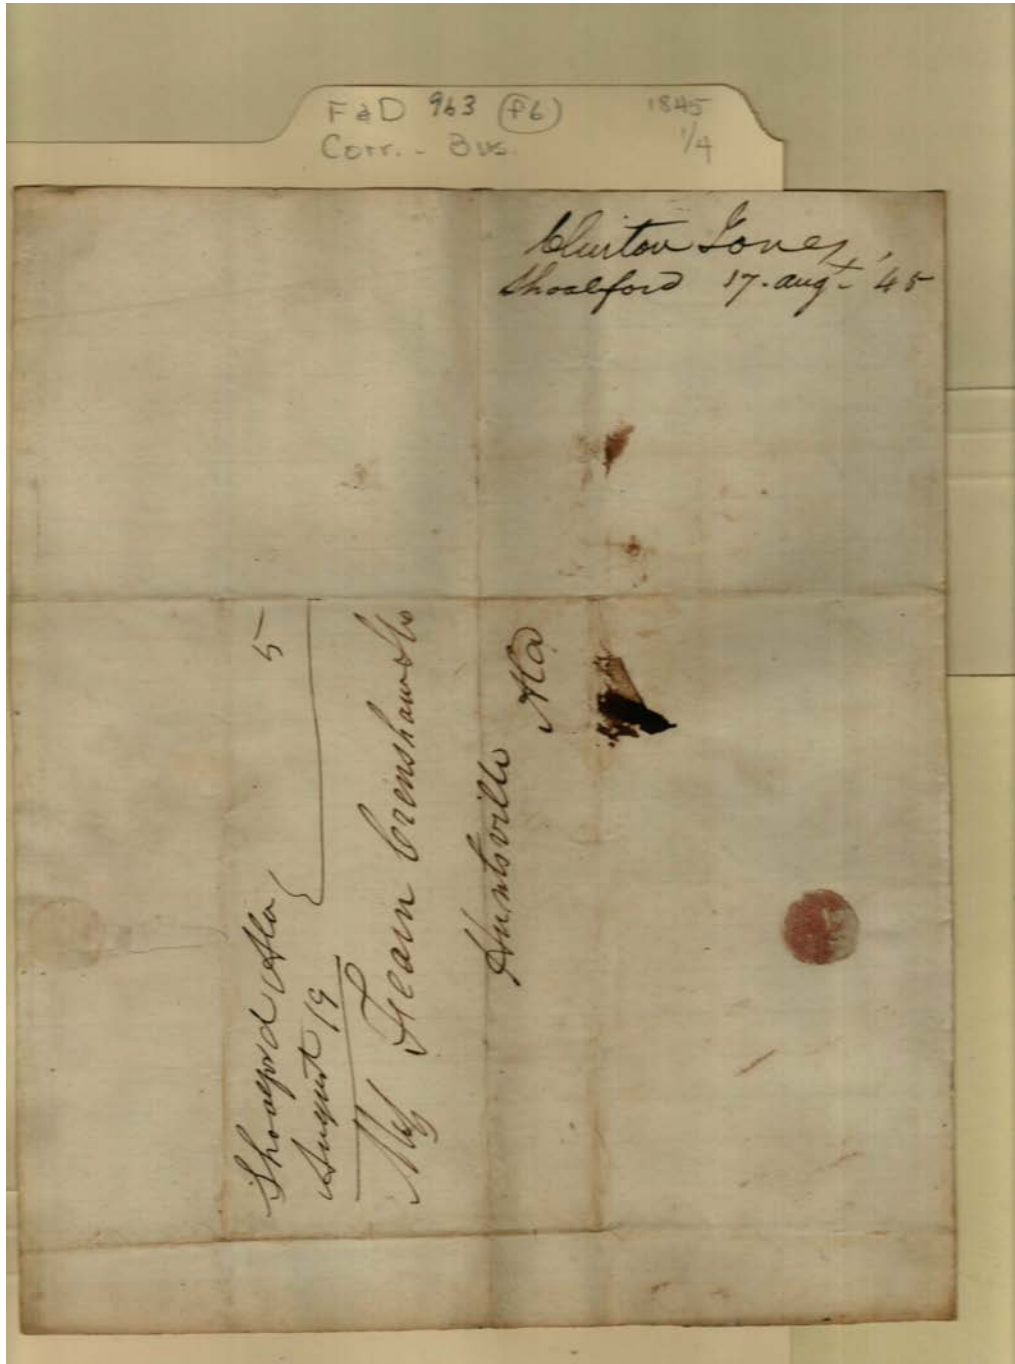 F & D 963 (F6) 1845
Corr. - Bus. 1/4
Clinton Jones,
Shoalford 17. augt. '45
Shoalford Ala
August 19
5
Mess Fearn Crenshaw & Co
Huntsville
Ala